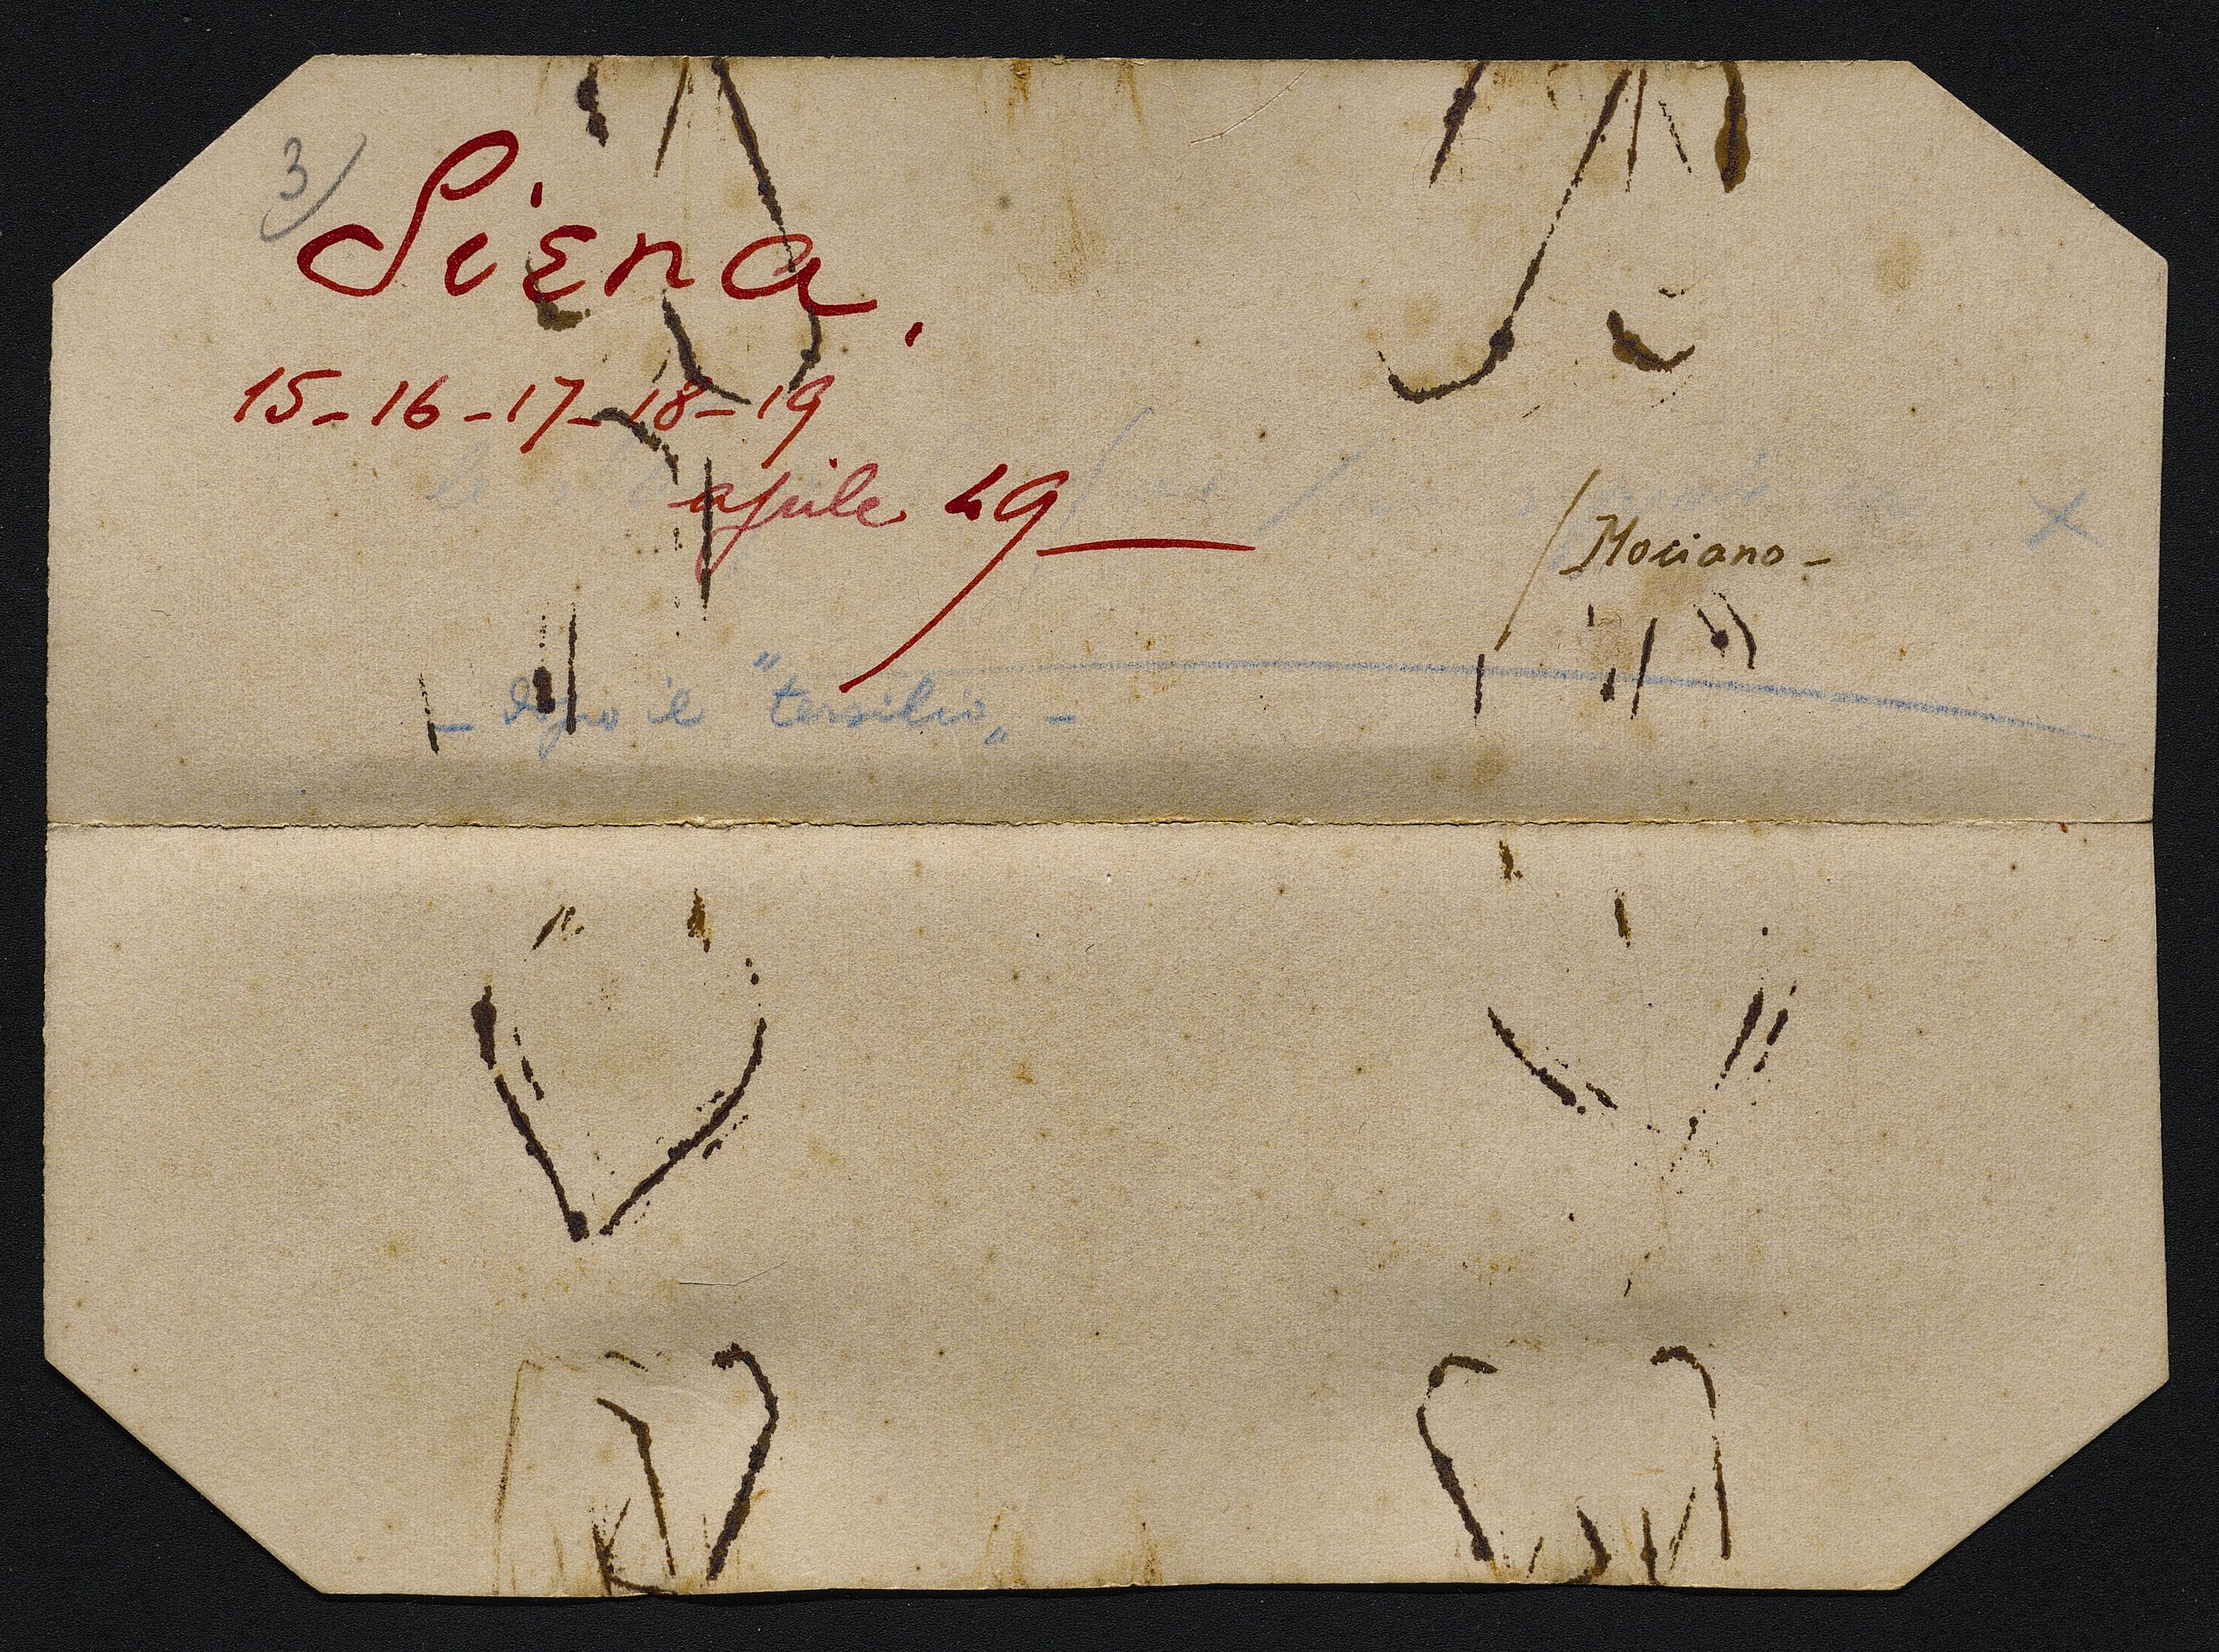 3)
Siena.
15-16-17-18-19
aprile 49
Mociano-
- Dopo il "tersilio„ -